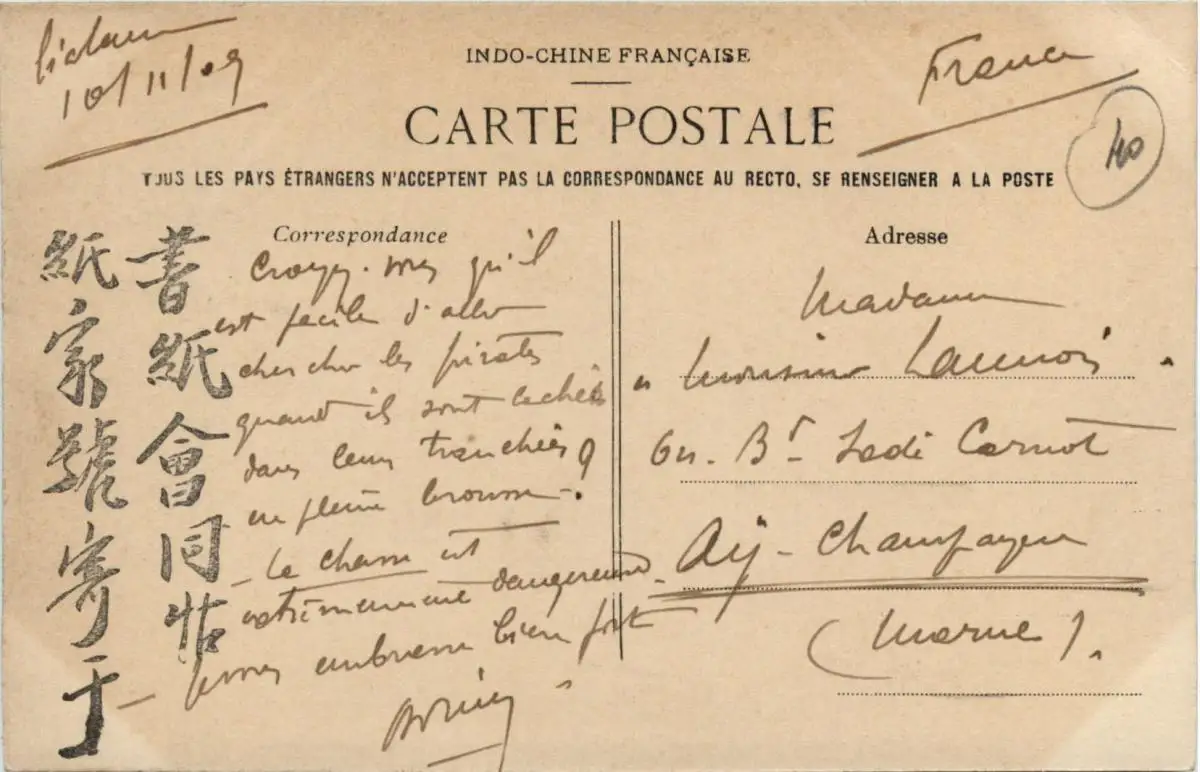 10/11/09
INDO-CHINE FRANÇAISE
France
CARTE POSTALE
40
TOUS LES PAYS ÉTRANGERS N'ACCEPTENT PAS LA CORRESPONDANCE AU RECTO, SE RENSEIGNER A LA POSTE
書紙會同帖
紙家號寄于
Correspondance
Croyez-vous qu'il
est facile d'aller
chercher les pirates
quand ils sont cachés
dans leurs tranchées
en pleine brousse ?
- La chasse est
extrêmement dangereuse.
- Vous embrasse bien fort
Adresse
Madame
" Monsieur Launois "
64. Bd Sadi Carnot
Aÿ - Champagne
(Marne).